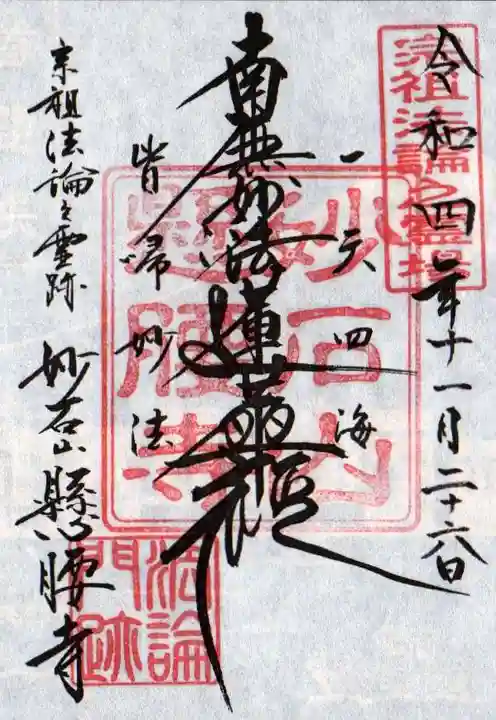 令和四年十一月二十六日
一天四海
南無妙法蓮華経
皆帰妙法
宗祖法論之霊跡 妙石山懸腰寺
宗祖法論之霊場
妙石山
懸腰寺
法論
門跡